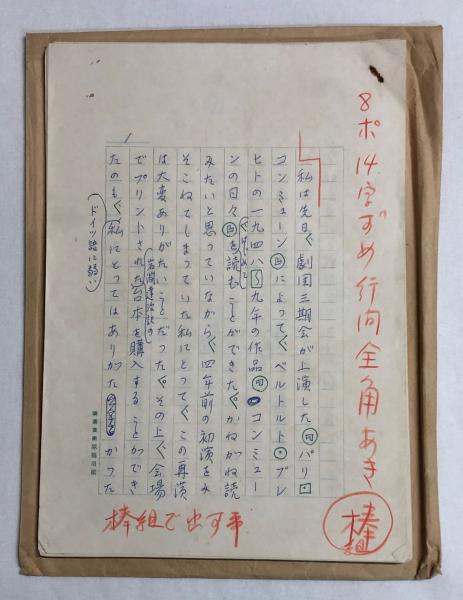 8ポ14字づめ行向全角あき
棒組
私は先日劇団三期会が上演したパリ・
コンミューンによってベルトルト・ブレ
ヒトの一九四八〜九年の作品コンミュー
ンの日々をはじめて読むことができた。かねがね読
みたいと思っていながら、四年前の初演をみ
そこねてしまっていた私にとって、この再演
は大変ありがたいことだった。その上、会場
で岩淵達治訳のプリントされた台本を購入することができ
たのも、ドイツ語に弱い私にとってはありがたかった
1
棒組で出す事